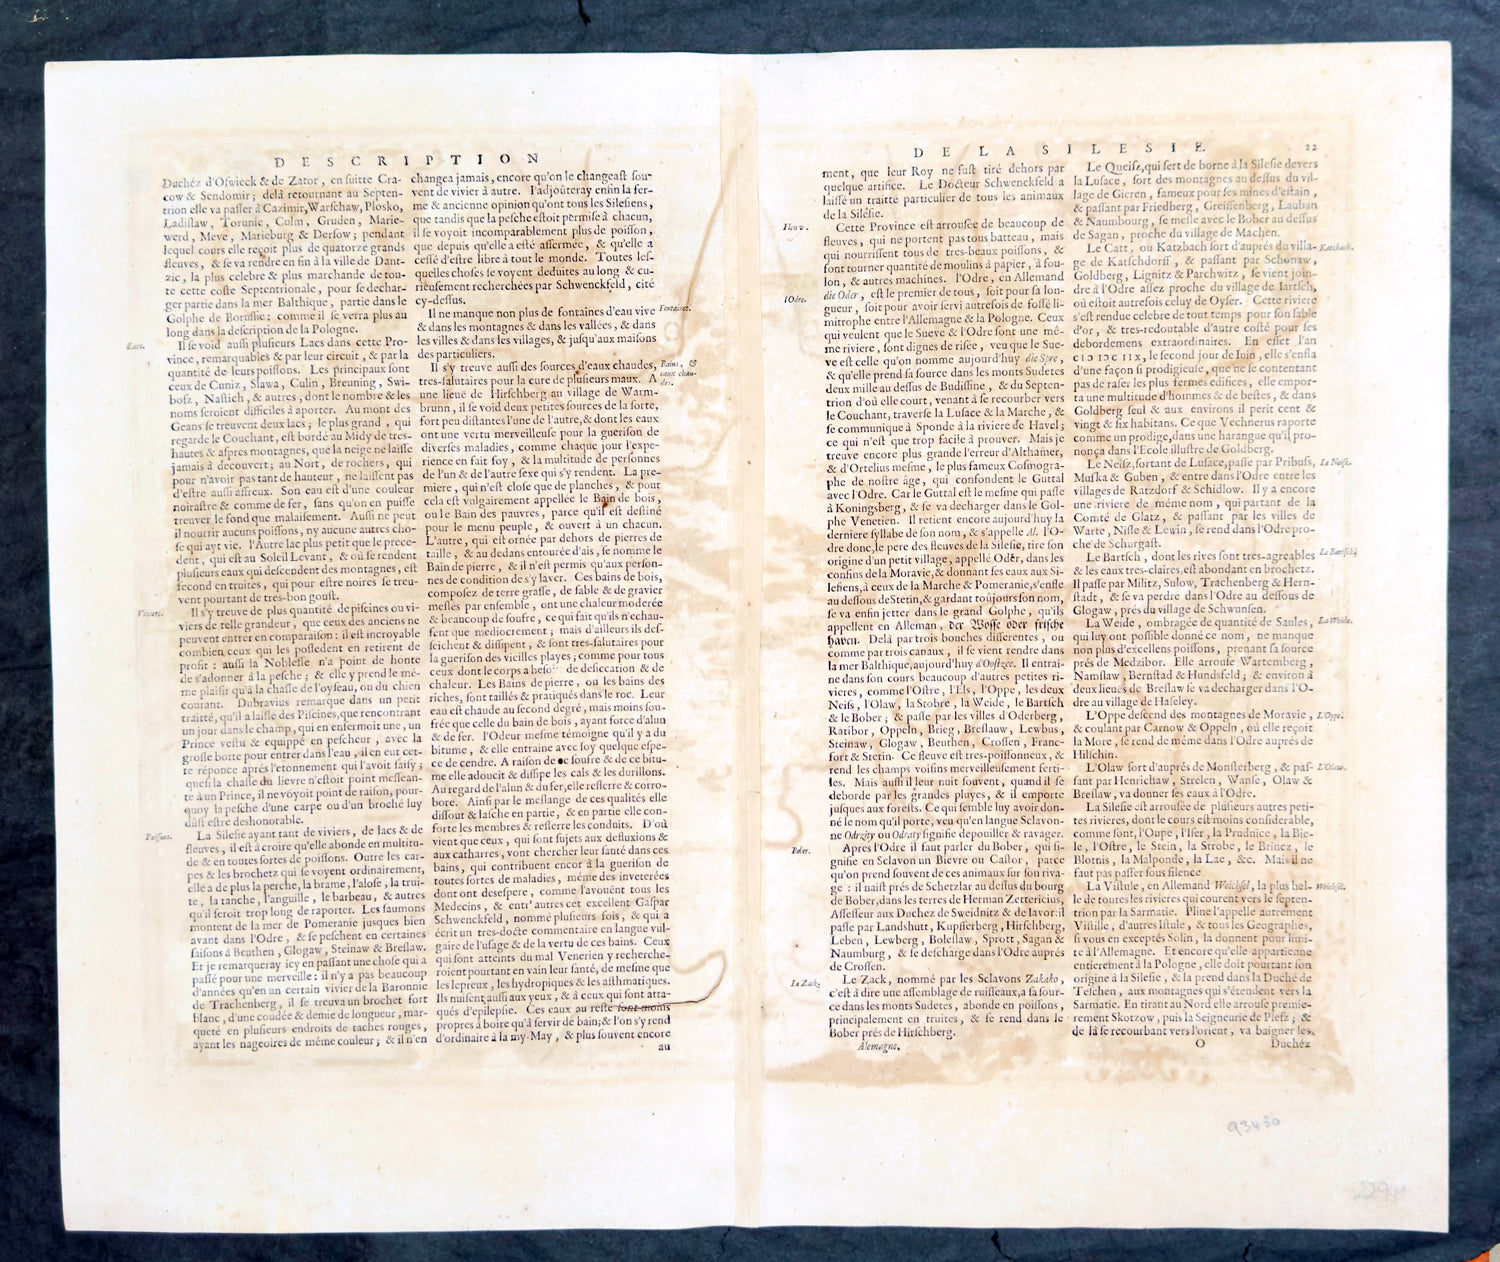 DESCRIPTION
Duchéz d'Oſwieck & de Zator, en ſuitte Cra-
cow & Sendomir; delà retournant au Septen-
trion elle va paſſer à Cazimir, Warſchaw, Plosko,
Ladiſlaw, Torunie, Culm, Gruden, Marie-
werd, Meve, Marieburg & Derſow; pendant
lequel cours elle reçoit plus de quatorze grands
fleuves, & ſe va rendre en fin à la ville de Dant-
zic, la plus celebre & la plus marchande de tou-
te cette coſte Septentrionale, pour ſe dechar-
ger partie dans la mer Balthique, partie dans le
Golphe de Boruſſie: comme il ſe verra plus au
long dans la deſcription de la Pologne.
Lacs.
Il ſe void auſſi pluſieurs Lacs dans cette Pro-
vince, remarquables & par leur circuit, & par la
quantité de leurs poiſſons. Les principaux ſont
ceux de Cuniz, Slawa, Culin, Breuning, Swi-
boſz, Naſtich, & autres, dont le nombre & les
noms ſeroient difficiles à aporter. Au mont des
Geans ſe treuvent deux lacs; le plus grand, qui
regarde le Couchant, eſt bordé au Midy de tres-
hautes & aſpres montagnes, que la neige ne laiſſe
jamais à decouvert; au Nort, de rochers, qui
pour n'avoir pas tant de hauteur, ne laiſſent pas
d'eſtre auſſi affreux. Son eau eſt d'une couleur
noiraſtre & comme de fer, ſans qu'on en puiſſe
treuver le fond que malaiſement. Auſſi ne peut
il nourrir aucuns poiſſons, ny aucunes autres cho-
ſe qui ayt vie. l'Autre lac plus petit que le prece-
dent, qui eſt au Soleil Levant, & où ſe rendent
pluſieurs eaux qui deſcendent des montagnes, eſt
fecond en truites, qui pour eſtre noires ſe treu-
vent pourtant de tres-bon gouſt.
Viviers.
Il s'y treuve de plus quantité de piſcines ou vi-
viers de telle grandeur, que ceux des anciens ne
peuvent entrer en comparaiſon: il eſt incroyable
combien ceux qui les poſſedent en retirent de
profit: auſſi la Nobleſſe n'a point de honte
de s'adonner à la peſche; & elle y prend le mé-
me plaiſir qu'à la chaſſe de l'oyſeau, ou du chien
courant. Dubravius remarque dans un petit
traitté, qu'il a laiſſé des Piſcines, que rencontrant
un jour dans le champ, qui en enfermoit une, un
Prince veſtu & equippé en peſcheur, avec la
groſſe botte pour entrer dans l'eau, il en eut cet-
te réponce aprés l'etonnement qui l'avoit ſaiſy;
que ſi la chaſſe du lievre n'eſtoit point meſſean-
te à un Prince, il ne voyoit point de raiſon, pour-
quoy la peſche d'une carpe ou d'un broché luy
dût eſtre deshonorable.
Poiſſons.
La Sileſie ayant tant de viviers, de lacs & de
fleuves, il eſt à croire qu'elle abonde en multitu-
de & en toutes ſortes de poiſſons. Outre les car-
pes & les brochetz qui ſe voyent ordinairement,
elle a de plus la perche, la brame, l'aloſe, la trui-
te, la tanche, l'anguille, le barbeau, & autres
qu'il ſeroit trop long de raporter. Les ſaumons
montent de la mer de Pomeranie jusques bien
avant dans l'Odre, & ſe peſchent en certaines
ſaiſons à Beuthen, Glogaw, Steinaw & Breſlaw.
Et je remarqueray icy en paſſant une choſe qui a
paſſé pour une merveille: il n'y a pas beaucoup
d'années qu'en un certain vivier de la Baronnie
de Trachenberg, il ſe treuva un brochet fort
blanc, d'une coudée & demie de longueur, mar-
queté en pluſieurs endroits de taches rouges,
ayant les nageoires de méme couleur; & il n'en
changea jamais, encore qu'on le changeaſt ſou-
vent de vivier à autre. I'adjoûteray enfin la fer-
me & ancienne opinion qu'ont tous les Sileſiens,
que tandis que la peſche eſtoit permiſe à chacun,
il ſe voyoit incomparablement plus de poiſſon,
que depuis qu'elle a eſté affermée, & qu'elle a
ceſſé d'eſtre libre à tout le monde. Toutes leſ-
quelles choſes ſe voyent deduites au long & cu-
rieuſement recherchées par Schwenckfeld, cité
cy-deſſus.
Fontaines.
Il ne manque non plus de fontaines d'eau vive
& dans les montagnes & dans les vallées, & dans
les villes & dans les villages, & juſqu'aux maiſons
des particuliers.
Bains, & eaux chaudes.
Il s'y treuve auſſi des ſources d'eaux chaudes,
tres-ſalutaires pour la cure de pluſieurs maux. A
une lieuë de Hirſchberg au village de Warm-
brunn, il ſe void deux petites ſources de la ſorte,
fort peu diſtantes l'une de l'autre, & dont les eaux
ont une vertu merveilleuſe pour la gueriſon de
diverſes maladies, comme chaque jour l'expe-
rience en fait foy, & la multitude de perſonnes
de l'un & de l'autre ſexe qui s'y rendent. La pre-
miere, qui n'eſt cloſe que de planches, & pour
cela eſt vulgairement appellée le Bain de bois,
ou le Bain des pauvres, parce qu'il eſt deſtiné
pour le menu peuple, & ouvert à un chacun.
L'autre, qui eſt ornée par dehors de pierres de
taille, & au dedans entourée d'ais, ſe nomme le
Bain de pierre, & il n'eſt permis qu'aux perſon-
nes de condition de s'y laver. Ces bains de bois,
compoſez de terre graſſe, de ſable & de gravier
meſlés par enſemble, ont une chaleur moderée
& beaucoup de ſoufre, ce qui fait qu'ils n'echau-
fent que mediocrement; mais d'ailleurs ils deſ-
ſeichent & diſſipent, & ſont tres-ſalutaires pour
la gueriſon des vieilles playes; comme pour tous
ceux dont le corps a beſoin de deſiccation & de
chaleur. Les Bains de pierre, ou les bains des
riches, ſont taillés & pratiqués dans le roc. Leur
eau eſt chaude au ſecond degré, mais moins ſou-
frée que celle du bain de bois, ayant force d'alun
& de fer. l'Odeur meſme témoigne qu'il y a du
bitume, & elle entraine avec ſoy quelque eſpe-
ce de cendre. A raiſon de ce ſoufre & de ce bitu-
me elle adoucit & diſſipe les cals & les durillons.
Au regard de l'alun & du fer, elle reſſerre & corro-
bore. Ainſi par le meſlange de ces qualités elle
diſſout & laſche en partie, & en partie elle con-
forte les membres & reſſerre les conduits. D'où
vient que ceux, qui ſont ſujets aux defluxions &
aux catharres, vont chercher leur ſanté dans ces
bains, qui contribuent encor à la gueriſon de
toutes ſortes de maladies, méme des inveterées
dont ont deſeſpere, comme l'avouënt tous les
Medecins, & entr'autres cet excellent Gaſpar
Schwenckfeld, nommé pluſieurs fois, & qui a
écrit un tres-docte commentaire en langue vul-
gaire de l'uſage & de la vertu de ces bains. Ceux
qui ſont atteints du mal Venerien y recherche-
roient pourtant en vain leur ſanté, de meſme que
les lepreux, les hydropiques & les aſthmatiques.
Ils nuiſent auſſi aux yeux, & à ceux qui ſont atta-
qués d'epilepſie. Ces eaux au reſte ſont moins
propres à boire qu'à ſervir de bain; & l'on s'y rend
d'ordinaire à la my-May, & plus ſouvent encore
au
DE LA SILESIE. 22
ment, que leur Roy ne fuſt tiré dehors par
quelque artifice. Le Docteur Schwenckfeld a
laiſſé un traitté particulier de tous les animaux
de la Siléſie.
Fleuv.
Cette Province eſt arrouſée de beaucoup de
fleuves, qui ne portent pas tous batteau, mais
qui nourriſſent tous de tres-beaux poiſſons, &
font tourner quantité de moulins à papier, à fou-
lon, & autres machines. l'Odre, en Allemand
l'Odre.
die Oder, eſt le premier de tous, ſoit pour ſa lon-
gueur, ſoit pour avoir ſervi autrefois de foſſé li-
mitrophe entre l'Allemagne & la Pologne. Ceux
qui veulent que le Sueve & l'Odre ſont une mé-
me riviere, ſont dignes de riſée, veu que le Sue-
ve eſt celle qu'on nomme aujourd'huy die Spre,
& qu'elle prend ſa ſource dans les monts Sudetes
deux mille au deſſus de Budiſſine, & du Septen-
trion d'où elle court, venant à ſe recourber vers
le Couchant, traverſe la Luſace & la Marche, &
ſe communique à Sponde à la riviere de Havel;
ce qui n'eſt que trop facile à prouver. Mais je
treuve encore plus grande l'erreur d'Althamer,
& d'Ortelius meſme, le plus fameux Coſmogra-
phe de noſtre âge, qui confondent le Guttal
avec l'Odre. Car le Guttal eſt le meſme qui paſſe
à Koningsberg, & ſe va decharger dans le Gol-
phe Venetien. Il retient encore aujourd'huy la
derniere ſyllabe de ſon nom, & s'appelle Al. l'O-
dre donc, le pere des fleuves de la Sileſie, tire ſon
origine d'un petit village, appellé Odêr, dans les
confins de la Moravie, & donnant ſes eaux aux Si-
leſiens, à ceux de la Marche & Pomeranie, s'enfle
au deſſous de Stetin, & gardant toûjours ſon nom,
ſe va enfin jetter dans le grand Golphe, qu'ils
appellent en Alleman, der Woſſe oder friſche
haven. Delà par trois bouches differentes, ou
comme par trois canaux, il ſe vient rendre dans
la mer Balthique, aujourd'huy d'Ooſtzee. Il entrai-
ne dans ſon cours beaucoup d'autres petites ri-
vieres, comme l'Oſtre, l'Els, l'Oppe, les deux
Neiſs, l'Olaw, la Strobe, la Weide, le Bartſch
& le Bober; & paſſe par les villes d'Oderberg,
Ratibor, Oppeln, Brieg, Breſlauw, Lewbus,
Steinaw, Glogaw, Beuthen, Croſſen, Franc-
fort & Stetin. Ce fleuve eſt tres-poiſſonneux, &
rend les champs voiſins merveilleuſement ferti-
les. Mais auſſi il leur nuit ſouvent, quand il ſe
deborde par les grandes pluyes, & il emporte
juſques aux foreſts. Ce qui ſemble luy avoir don-
né le nom qu'il porte, veu qu'en langue Sclavon-
ne Odrzity ou Odraty ſignifie depouiller & ravager.
Bober.
Apres l'Odre il faut parler du Bober, qui ſi-
gnifie en Sclavon un Bievre ou Caſtor, parce
qu'on prend ſouvent de ces animaux ſur ſon riva-
ge: il naiſt prés de Scherzlar au deſſus du bourg
de Bober, dans les terres de Herman Zettericius,
Aſſeſſeur aux Duchez de Sweidnitz & de Iavor: il
paſſe par Landshutt, Kupfferberg, Hirſchberg,
Leben, Lewberg, Boleſlaw, Sprott, Sagan &
Naumburg, & ſe deſcharge dans l'Odre auprés
de Croſſen.
Le Zack.
Le Zack, nommé par les Sclavons Zakako,
c'eſt à dire une aſſemblage de ruiſſeaux, a ſa ſour-
ce dans les monts Sudetes, abonde en poiſſons,
principalement en truites, & ſe rend dans le
Bober prés de Hirſchberg.
Alemagne.
Le Queiſz, qui ſert de borne à la Sileſie devers
la Luſace, ſort des montagnes au deſſus du vil-
lage de Gieren, fameux pour ſes mines d'eſtain,
& paſſant par Friedberg, Greiſſenberg, Lauban
& Naumbourg, ſe meſle avec le Bober au deſſus
de Sagan, proche du village de Machen.
Katzbach.
Le Catt, ou Katzbach ſort d'auprés du villa-
ge de Katſchdorff, & paſſant par Schonaw,
Goldberg, Lignitz & Parchwitz, ſe vient join-
dre à l'Odre aſſez proche du village de Iartſch,
où eſtoit autrefois celuy de Oyſer. Cette riviere
s'eſt rendue celebre de tout temps pour ſon ſable
d'or, & tres-redoutable d'autre coſté pour ſes
debordemens extraordinaires. En effet l'an
CIƆ IƆC IIX, le ſecond jour de Iuin, elle s'enfla
d'une façon ſi prodigieuſe, que ne ſe contentant
pas de raſer les plus fermes edifices, elle empor-
ta une multitude d'hommes & de beſtes, & dans
Goldberg ſeul & aux environs il perit cent &
vingt & ſix habitans. Ce que Vechnerus raporte
comme un prodige, dans une harangue qu'il pro-
nonça dans l'Ecole illuſtre de Goldberg.
Le Neiſſ.
Le Neiſz, ſortant de Luſace, paſſe par Pribuſs,
Muſka & Guben, & entre dans l'Odre entre les
villages de Ratzdorf & Schidlow. Il y a encore
une riviere de méme nom, qui partant de la
Comté de Glatz, & paſſant par les villes de
Warte, Niſſe & Lewin, ſe rend dans l'Odre pro-
che de Schurgaſt.
Le Bartſch.
Le Bartſch, dont les rives ſont tres-agreables
& les eaux tres-claires, eſt abondant en brochetz.
Il paſſe par Militz, Sulow, Trachenberg & Hern-
ſtadt, & ſe va perdre dans l'Odre au deſſous de
Glogaw, prés du village de Schwunſen.
La Weide.
La Weide, ombragée de quantité de Saules,
qui luy ont poſſible donné ce nom, ne manque
non plus d'excellens poiſſons, prenant ſa ſource
prés de Medzibor. Elle arrouſe Wartemberg,
Namſlaw, Bernſtad & Hundsfeld; & environ à
deux lieuës de Breſlaw ſe va decharger dans l'O-
dre au village de Haſeley.
L'Oppe.
L'Oppe deſcend des montagnes de Moravie,
& coulant par Carnow & Oppeln, où elle reçoit
la More, ſe rend de méme dans l'Odre auprés de
Hilſchin.
L'Olaw.
L'Olaw ſort d'auprés de Monſterberg, & paſ-
ſant par Henrichaw, Strelen, Wanſe, Olaw &
Breſlaw, va donner ſes eaux à l'Odre.
La Sileſie eſt arrouſée de pluſieurs autres peti-
tes rivieres, dont le cours eſt moins conſiderable,
comme ſont, l'Oupe, l'Iſer, la Prudnice, la Bie-
le, l'Oſtre, le Stein, la Strobe, le Brincz, le
Blotnis, la Malponde, la Lae, &c. Mais il ne
faut pas paſſer ſous ſilence
Weichſel.
La Viſtule, en Allemand Weichſel, la plus bel-
le de toutes les rivieres qui courent vers le ſepten-
trion par la Sarmatie. Pline l'appelle autrement
Viſtille, d'autres Iſtule, & tous les Geographes,
ſi vous en exceptés Solin, la donnent pour limi-
te à l'Allemagne. Et encore qu'elle appartienne
entierement à la Pologne, elle doit pourtant ſon
origine à la Sileſie, & la prend dans la Duché de
Teſchen, aux montagnes qui s'étendent vers la
Sarmatie. En tirant au Nord elle arrouſe premie-
rement Skotzow, puis la Seigneurie de Pleſz; &
de là ſe recourbant vers l'orient, va baigner les
O Duchéz
93430